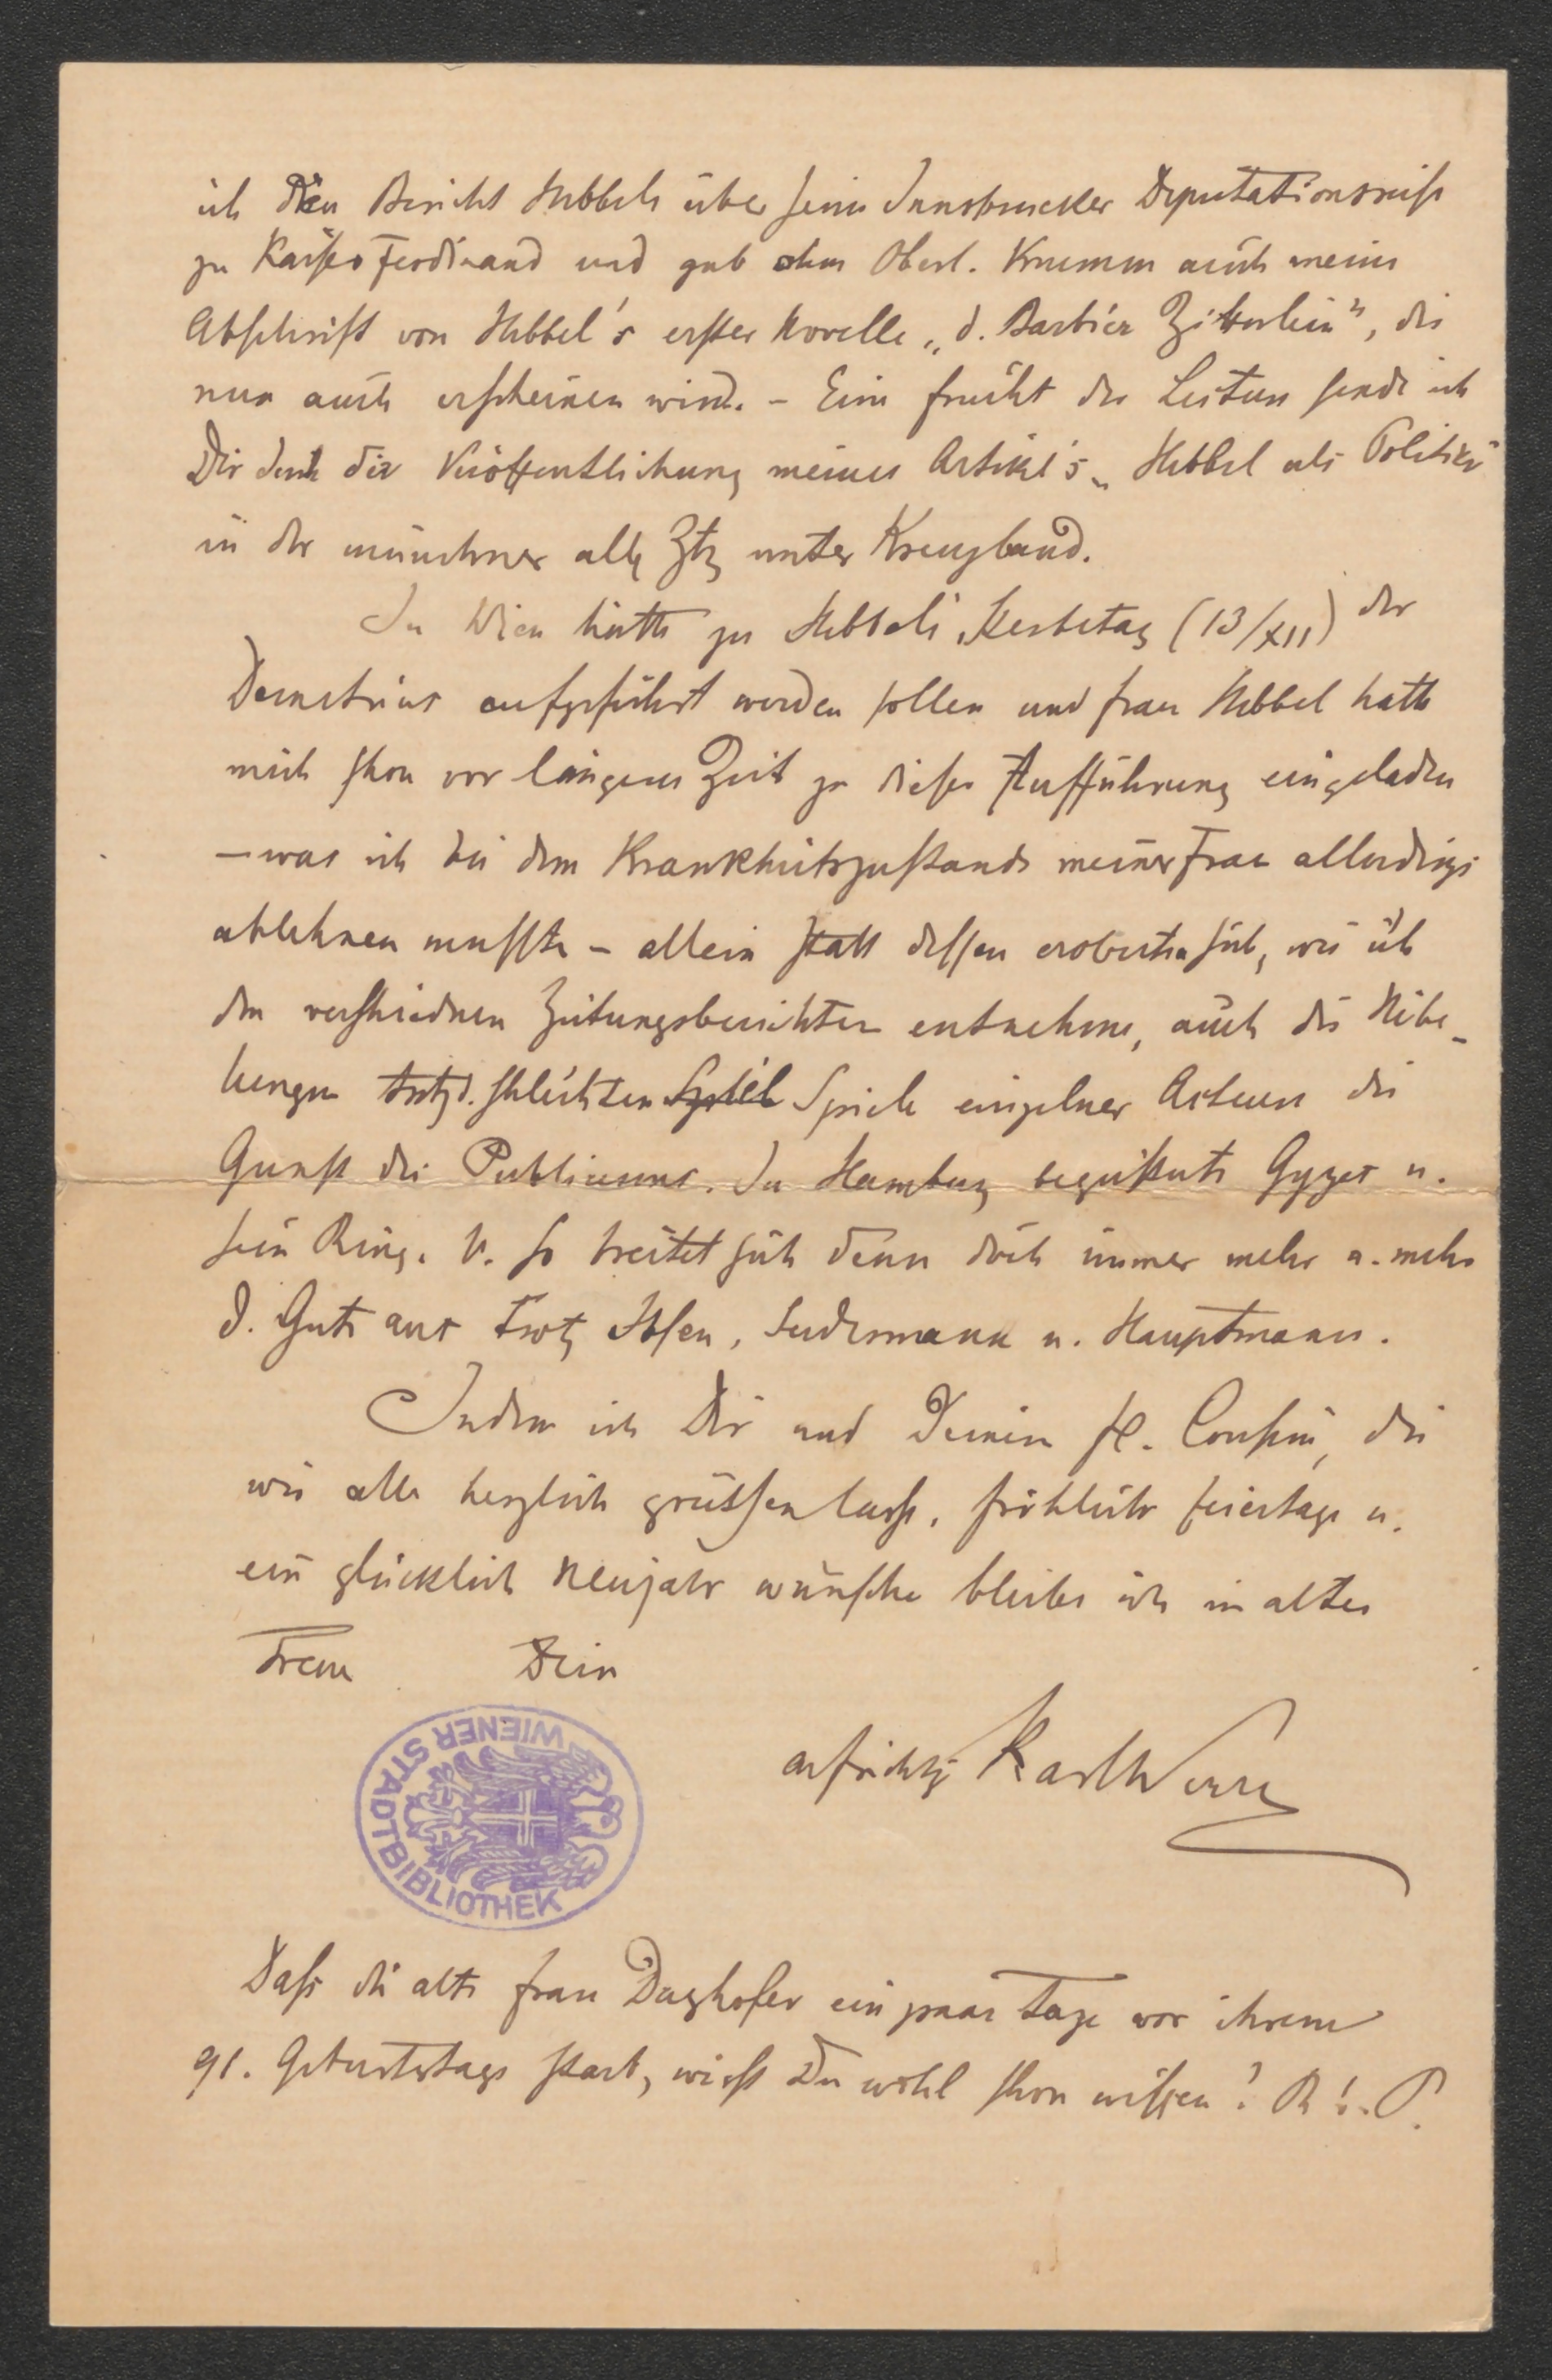 ich den Bericht Hebbels über seine Innsbrucker Deputationsreise
zu Kaiser Ferdinand und gab dem Oberl. Krumm auch meine
Abschrift von Hebbel's erster Novelle „d. Barbier Zitterlein", die
nun auch erscheinen wird. – Eine Frucht der sende ich
Dir die Veröffentlichung meines Artikel's „Hebbel als Politiker"
in der münchner allg Ztg unter Kreuzband.
In Wien hätte zu Hebbels Sterbetag (13/XII) der
Demetrius aufgeführt werden sollen und Frau Hebbel hatte
mich schon vor längerer Zeit zu dieser Aufführung eingeladen
– was ich bei dem Krankheitszustande meiner Frau allerdings
ablehnen musste – allein statt dessen eroberten sich, wie ich
den verschiednen Zeitungsberichten entnehme, auch die Nibe-
lungen trotz d. schlechten Spiel Spiels einzelner Acteure die
Gunst des Publicums. In Hamburg begeisterte Gyges u.
sein Ring. U. so breitet sich denn doch immer mehr u. mehr
d. Gute aus trotz Ibsen, Sudermann u. Hauptmann.
Indem ich Dir und Deiner fl. Cousine, die
wir alle herzlich grüssen lasse, fröhliche Feiertage u.
ein glücklich Neujahr wünsche bleibe ich in alter
Treue Dein
aufrichtige Karl Werner
WIENER STADTBIBLIOTHEK
Dass die alte Frau Daghofer ein paar Tage vor ihrem
91. Geburtstage starb, wirst Du wohl schon wissen? R. I. P.